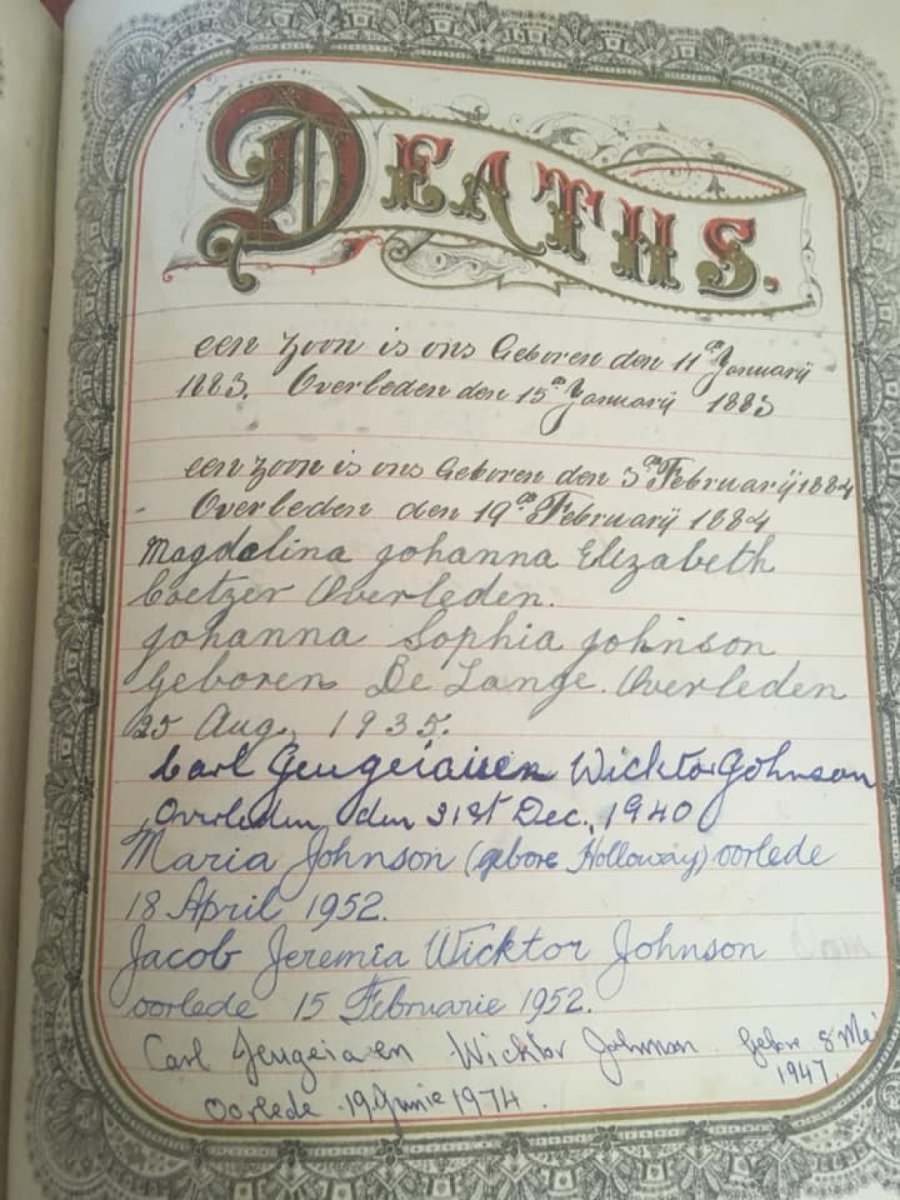 DEATHS.
een Zoon is ons Geboren den 11de Januarij
1883. Overleden den 15de Januarij 1883
een zoon is ons Geboren den 3de Februarij 1884
Overleden den 19de Februarij 1884
Magdalina Johanna Elizabeth
Coetzer Overleden.
Johanna Sophia Johnson
Geboren De Lange. Overleden
25 Aug. 1935.
Carl Wicktor Johnson
Overleden den 31st Dec., 1940
Maria Johnson (gebore Holloway) oorlede
18 April 1952.
Jacob Jeremia Wicktor Johnson
oorlede 15 Februarie 1952.
Carl Jeugeiaen Wicktor Johnson. Gebore 8 Mei
1947.
Oorlede 19 Junie 1974.